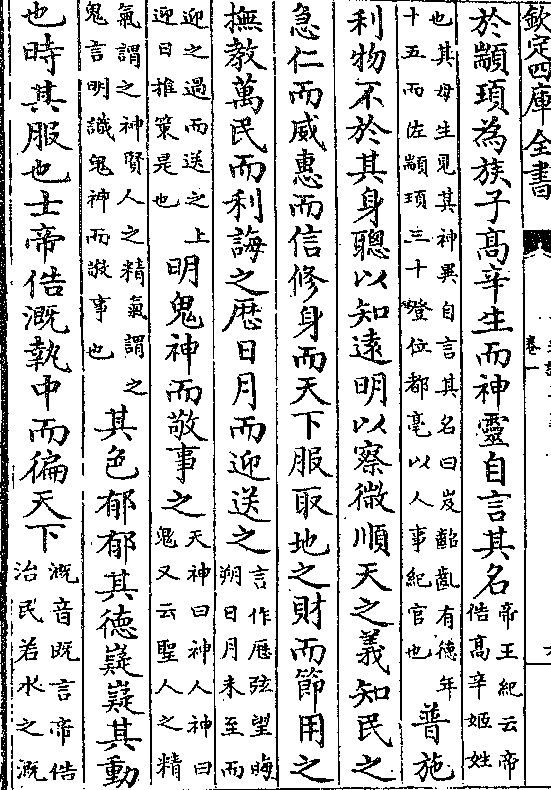 欽定四庫全書
卷一
於顓頊為族子高辛生而神靈自言其名帝王紀云帝俈高辛姬姓
也其母生見其神異自言其名曰岌齠齔有德年十五而佐顓頊三十登位都亳以人事紀官也普施
利物不於其身聰以知遠明以察微順天之義知民之
急仁而威惠而信修身而天下服取地之財而節用之
撫教萬民而利誨之歴日月而迎送之言作歴弦望晦朔日月未至而
迎之過而送之上迎日推策是也明鬼神而敬事之天神曰神人神曰鬼又云聖人之精
氣謂之神賢人之精氣謂之鬼言明識鬼神而敬事也其色郁郁其德嶷嶷其動
也時其服也士帝俈溉執中而徧天下溉音既言帝俈治民若水之溉